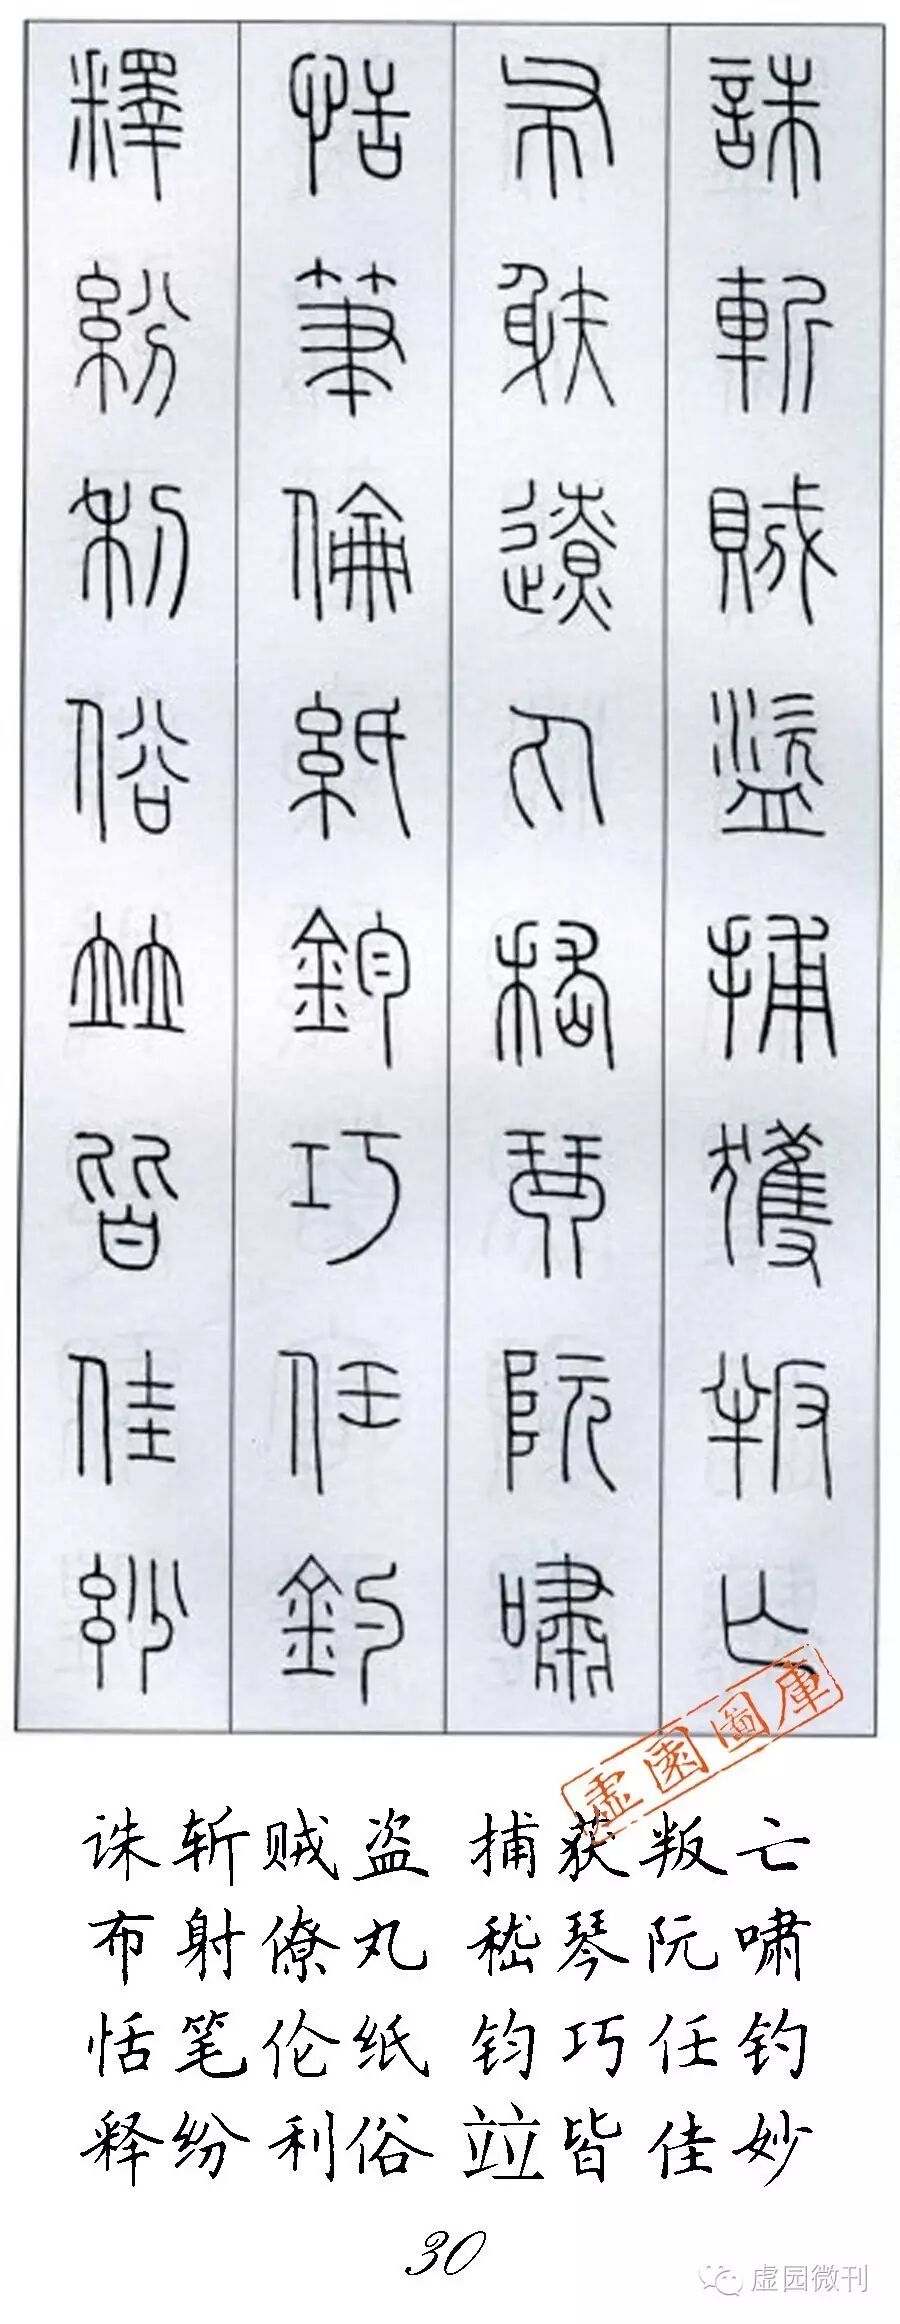 誅斬賊盜捕獲叛亡
布射遼丸嵇琴阮嘯
恬筆倫紙鈞巧任釣
釋紛利俗竝皆佳妙
虚園圖庫
诛斩贼盗 捕获叛亡
布射僚丸 嵇琴阮啸
恬笔伦纸 钧巧任钓
释纷利俗 竝皆佳妙
30
虚园微刊